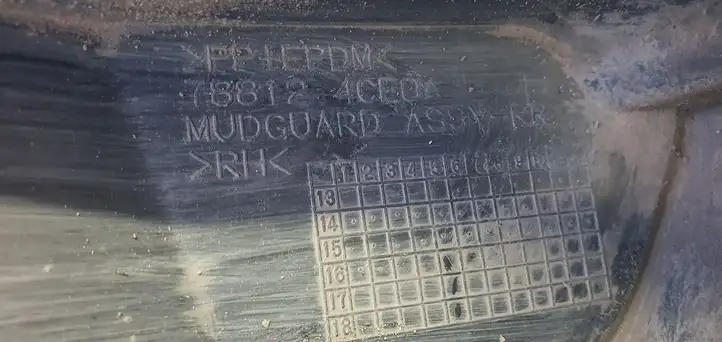 >PP+EPDM<
78812 4CE0A
MUDGUARD ASSY-RR
>RH<
1 2 3 4 5 6 7 8 9
13
14
15
16
17
18